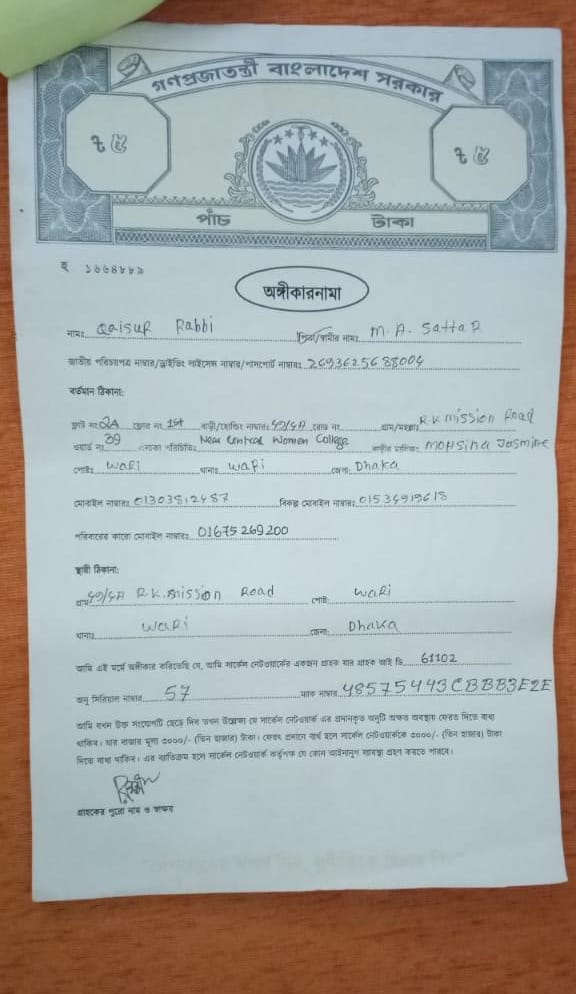 গণপ্রজাতন্ত্রী বাংলাদেশ সরকার
৳ ৫ ৳ ৫
পাঁচ টাকা
হ ১৬৬৪৮৮৯
অঙ্গীকারনামা
নামঃ Qaisur Rabbi পিতা/স্বামীর নামঃ M. A. SattaR
জাতীয় পরিচয়পত্র নাম্বার/ড্রাইভিং লাইসেন্স নাম্বার/পাসপোর্ট নাম্বারঃ 2693625688004
বর্তমান ঠিকানা:
ফ্ল্যাট নং 2A ফ্লোর নং 1st বাড়ী/হোল্ডিং নাম্বারঃ রোড নং গ্রাম/মহল্লাঃ R.K mission Road
ওয়ার্ড নং 39 এলাকা পরিচিতিঃ Near Central Women College বাড়ীর মালিকঃ MOHsina Jasmine
পোষ্টঃ waRi থানাঃ waRi জেলাঃ Dhaka
মোবাইল নাম্বারঃ 01303812487 বিকল্প মোবাইল নাম্বারঃ 01534919618
পরিবারের কারো মোবাইল নাম্বারঃ 01675269200
স্থায়ী ঠিকানা:
গ্রামঃ R.K.mission Road পোষ্টঃ waRi
থানাঃ waRi জেলাঃ Dhaka
আমি এই মর্মে অঙ্গীকার করিতেছি যে, আমি সার্কেল নেটওয়ার্কের একজন গ্রাহক যার গ্রাহক আই ডি 61102
অনু সিরিয়াল নাম্বার 57 ম্যাক নাম্বার 48575443CBBB3E2E
আমি যখন উক্ত সংযোগটি ছেড়ে দিব তখন উল্লেখ্য যে সার্কেল নেটওয়ার্ক এর প্রদানকৃত অনুটি অক্ষত অবস্থায় ফেরত দিতে বাধ্য
থাকিব। যার বাজার মূল্য ৩০০০/- (তিন হাজার) টাকা। ফেরৎ প্রদানে ব্যর্থ হলে সার্কেল নেটওয়ার্ককে ৩০০০/- (তিন হাজার) টাকা
দিতে বাধ্য থাকিব। এর ব্যতিক্রম হলে সার্কেল নেটওয়ার্ক কর্তৃপক্ষ যে কোন আইনানুগ ব্যবস্থা গ্রহণ করতে পারবে।
গ্রাহকের পুরো নাম ও স্বাক্ষর